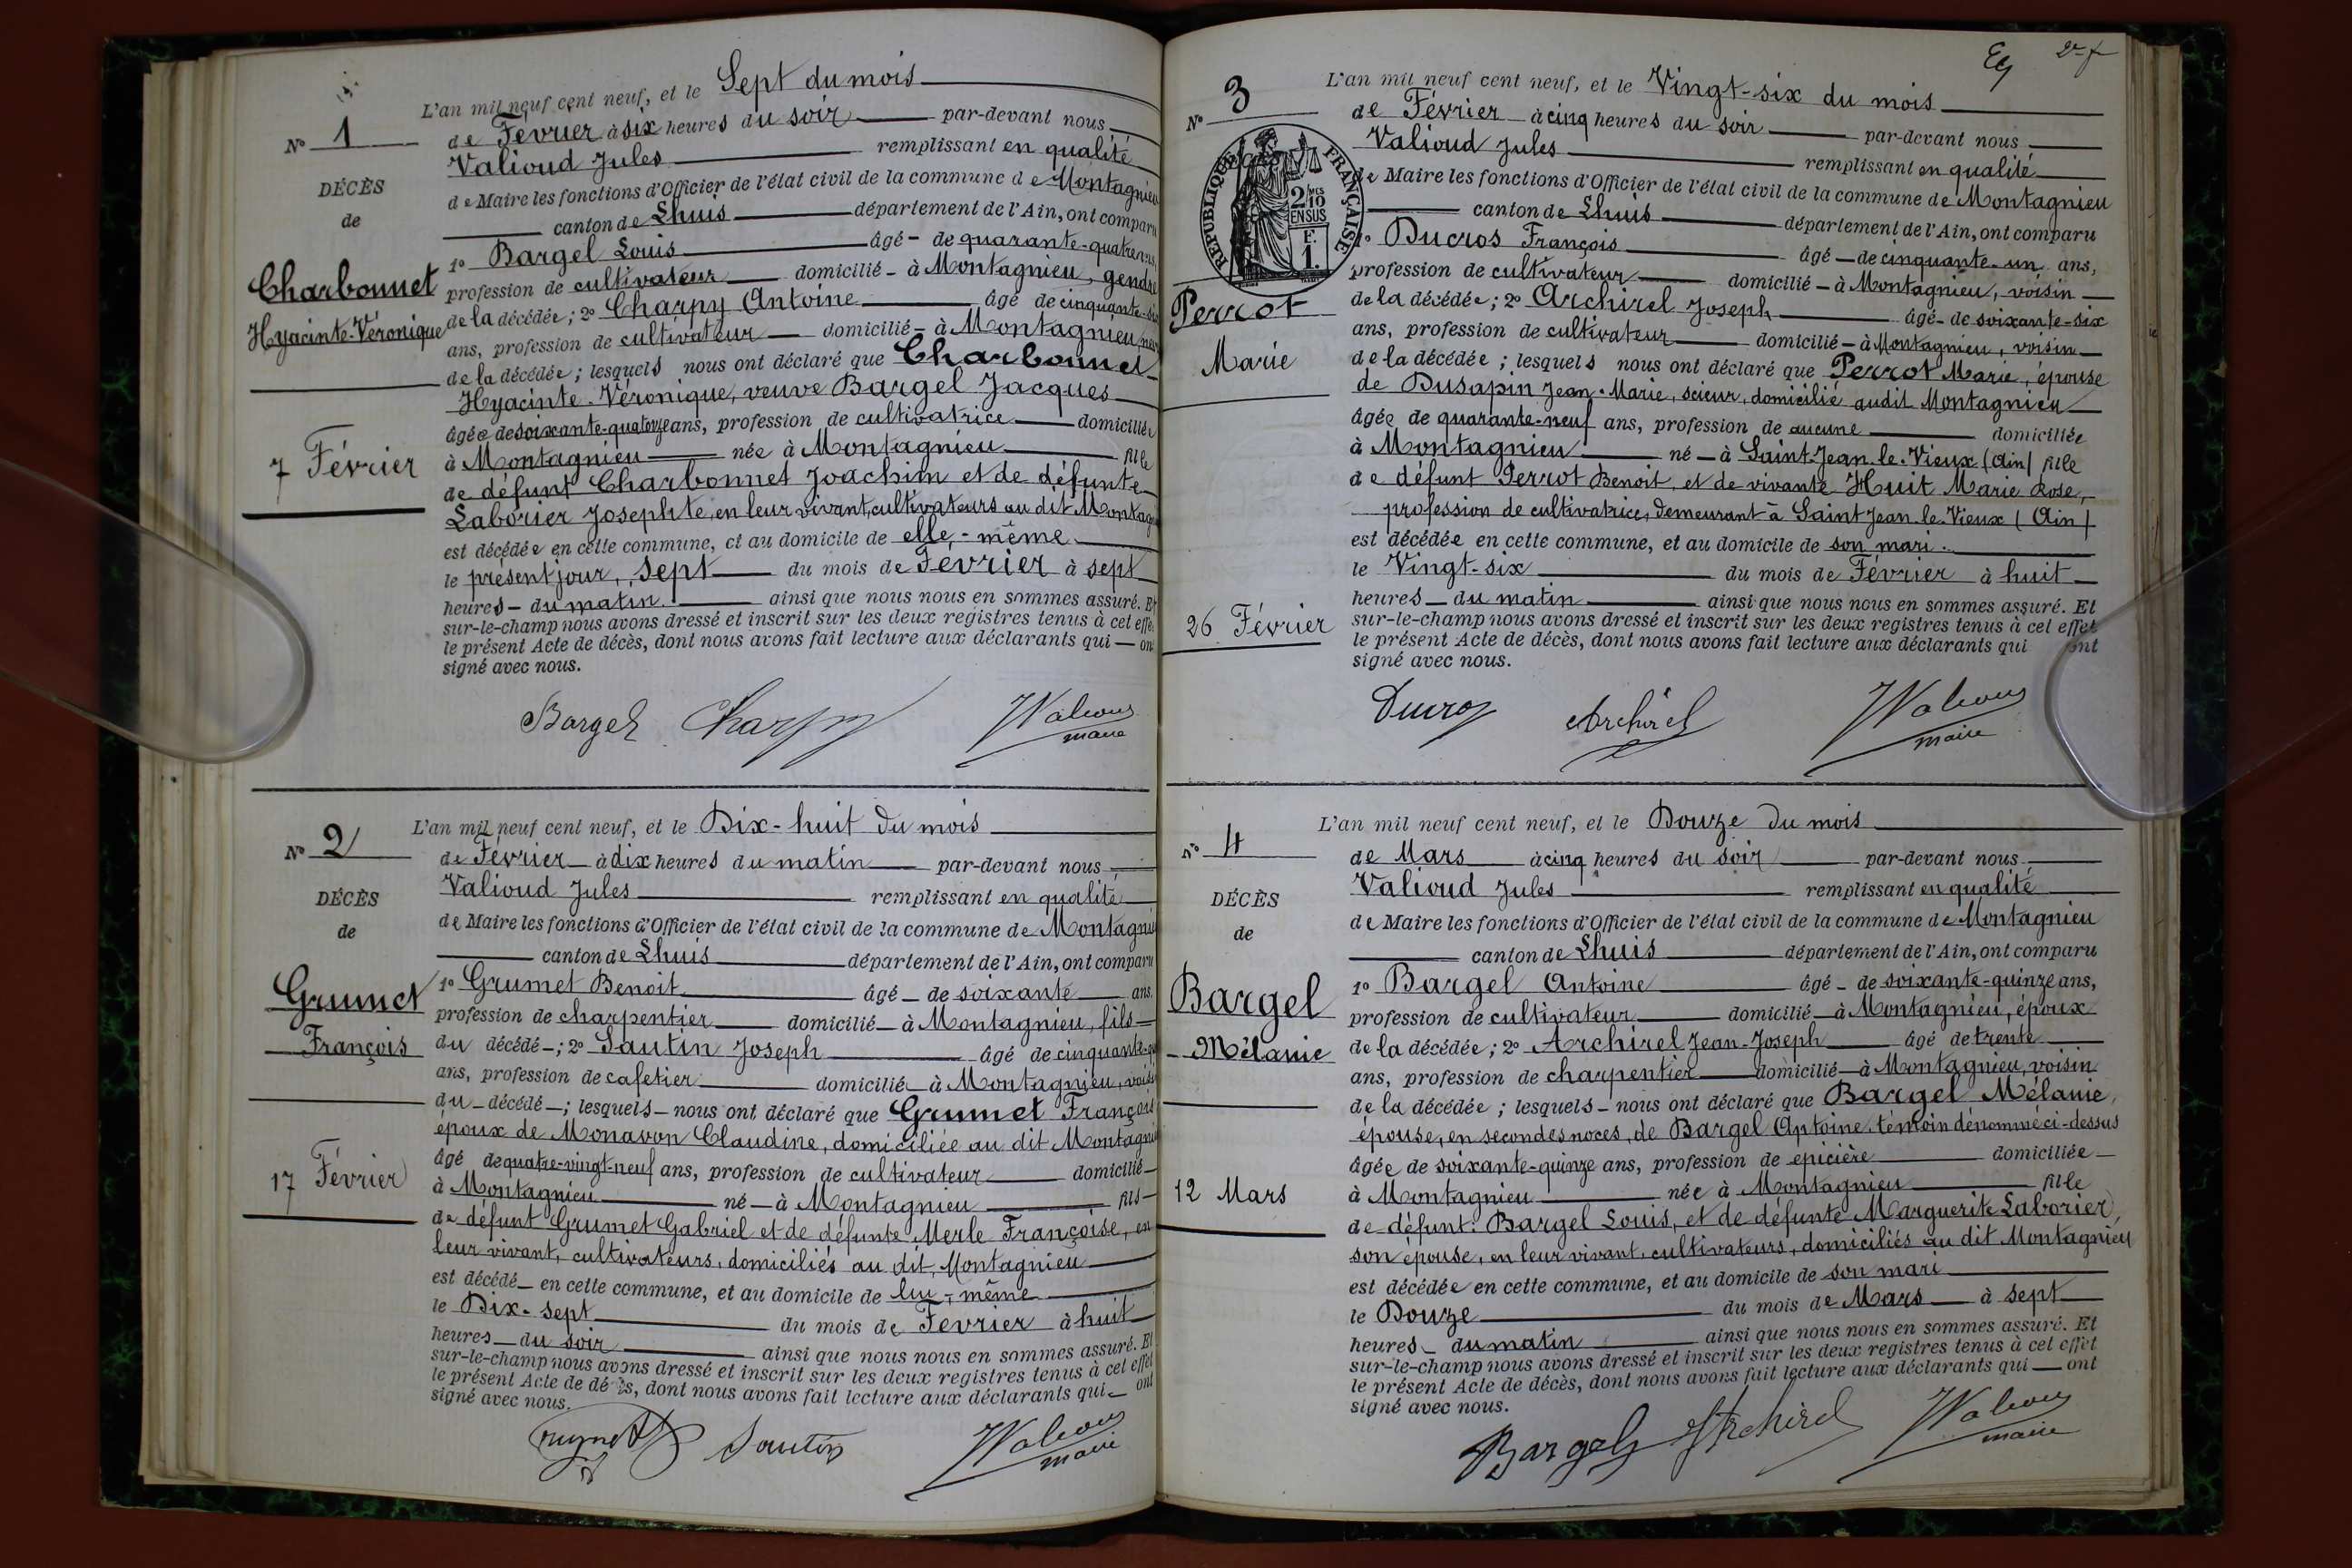 N° 1
DÉCÈS
de
Charbonnet
Hyacinte-Véronique
7 Février
L'an mil neuf cent neuf, et le Sept du mois
de Février à six heures du soir par-devant nous
Valioud Jules remplissant en qualité
de Maire les fonctions d'Officier de l'état civil de la commune de Montagnieu
canton de Lhuis département de l'Ain, ont comparu
1° Bargel Louis âgé de quarante-quatre ans,
profession de cultivateur domicilié à Montagnieu, gendre
de la décédée; 2° Charpy Antoine âgé de cinquante-six
ans, profession de cultivateur domicilié à Montagnieu,
de la décédée; lesquels nous ont déclaré que Charbonnet
Hyacinte-Véronique, veuve Bargel Jacques
âgée de soixante-quatorze ans, profession de cultivatrice domiciliée
à Montagnieu née à Montagnieu fille
de défunt Charbonnet Joachim et de défunte
Laborier Josephte, en leur vivant, cultivateurs au dit Montag
est décédée en cette commune, et au domicile de elle-même
le présent jour, sept du mois de Février à sept
heures du matin. ainsi que nous nous en sommes assuré. Et
sur-le-champ nous avons dressé et inscrit sur les deux registres tenus à cet effet
le présent Acte de décès, dont nous avons fait lecture aux déclarants qui ont
signé avec nous.
Bargel Charpy JValioud
maire
N° 2
DÉCÈS
de
Grumet
François
17 Février
L'an mil neuf cent neuf, et le Dix-huit du mois
de Février à dix heures du matin par-devant nous
Valioud Jules remplissant en qualité
de Maire les fonctions d'Officier de l'état civil de la commune de Montagnieu
canton de Lhuis département de l'Ain, ont comparu
1° Grumet Benoit âgé de soixante ans,
profession de charpentier domicilié à Montagnieu, fils
du décédé; 2° Sautin Joseph âgé de cinquante-
ans, profession de cafetier domicilié à Montagnieu, voisin
du décédé; lesquels nous ont déclaré que Grumet François
époux de Monavon Claudine, domiciliée au dit Montagnieu
âgé de quatre-vingt-neuf ans, profession de cultivateur domicilié
à Montagnieu né à Montagnieu fils
de défunt Grumet Gabriel et de défunte Merle Françoise, en
leur vivant, cultivateurs, domiciliés au dit, Montagnieu
est décédé en cette commune, et au domicile de lui-même
le Dix-sept du mois de Février à huit
heures du soir ainsi que nous nous en sommes assuré. Et
sur-le-champ nous avons dressé et inscrit sur les deux registres tenus à cet effet
le présent Acte de décès, dont nous avons fait lecture aux déclarants qui ont
signé avec nous.
Grumet Sautin JValioud
maire
2e f
N° 3
RÉPUBLIQUE FRANÇAISE
2/10 MES
EN SUS
F.
1.
Perrot
Marie
26 Février
L'an mil neuf cent neuf, et le Vingt-six du mois
de Février à cinq heures du soir par-devant nous
Valioud Jules remplissant en qualité
de Maire les fonctions d'Officier de l'état civil de la commune de Montagnieu
canton de Lhuis département de l'Ain, ont comparu
1° Ducros François âgé de cinquante-un ans,
profession de cultivateur domicilié à Montagnieu, voisin
de la décédée; 2° Archirel Joseph âgé de soixante-six
ans, profession de cultivateur domicilié à Montagnieu, voisin
de la décédée; lesquels nous ont déclaré que Perrot Marie, épouse
de Dusapin Jean-Marie, scieur, domicilié audit Montagnieu
âgée de quarante-neuf ans, profession de aucune domiciliée
à Montagnieu né à Saint-Jean-le-Vieux (Ain) fille
de défunt Perrot Benoit, et de vivante Huit Marie Rose,
profession de cultivatrice, demeurant à Saint Jean-le-Vieux (Ain)
est décédée en cette commune, et au domicile de son mari.
le Vingt-six du mois de Février à huit
heures du matin ainsi que nous nous en sommes assuré. Et
sur-le-champ nous avons dressé et inscrit sur les deux registres tenus à cet effet
le présent Acte de décès, dont nous avons fait lecture aux déclarants qui ont
signé avec nous.
Ducros Archirel JValioud
maire
N° 4
DÉCÈS
de
Bargel
Mélanie
12 Mars
L'an mil neuf cent neuf, et le Douze du mois
de Mars à cinq heures du soir par-devant nous
Valioud Jules remplissant en qualité
de Maire les fonctions d'Officier de l'état civil de la commune de Montagnieu
canton de Lhuis département de l'Ain, ont comparu
1° Bargel Antoine âgé de soixante-quinze ans,
profession de cultivateur domicilié à Montagnieu, époux
de la décédée; 2° Archirel Jean-Joseph âgé de trente
ans, profession de charpentier domicilié à Montagnieu, voisin
de la décédée; lesquels nous ont déclaré que Bargel Mélanie,
épouse, en secondes noces, de Bargel Antoine, témoin dénommé ci-dessus
âgée de soixante-quinze ans, profession de epicière domiciliée
à Montagnieu née à Montagnieu fille
de défunt: Bargel Louis, et de défunte Marguerite Laborier,
son épouse, en leur vivant, cultivateurs, domiciliés au dit Montagnieu
est décédée en cette commune, et au domicile de son mari
le Douze du mois de Mars à sept
heures du matin ainsi que nous nous en sommes assuré. Et
sur-le-champ nous avons dressé et inscrit sur les deux registres tenus à cet effet
le présent Acte de décès, dont nous avons fait lecture aux déclarants qui ont
signé avec nous.
Bargel Archirel JValioud
maire